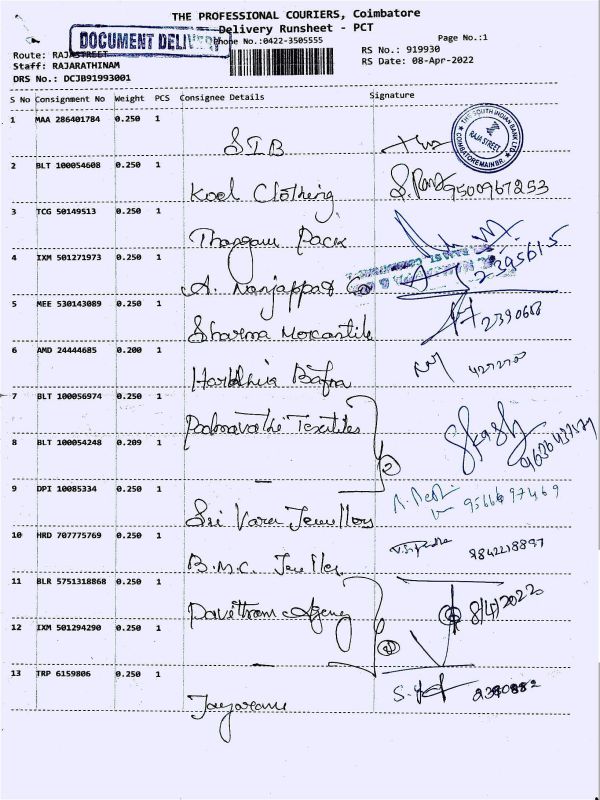 THE PROFESSIONAL COURIERS, Coimbatore
Delivery Runsheet - PCT
DOCUMENT DELIVERY
Phone No.:0422-3505555
Page No.:1
Route: RAJASTREET
RS No.: 919930
Staff: RAJARATHINAM
RS Date: 08-Apr-2022
DRS No.: DCJB91993001
S No Consignment No Weight PCS Consignee Details Signature
1 MAA 286401784 0.250 1
THE SOUTH INDIAN BANK LTD
RAJA STREET
COIMBATORE MAIN BR.
SIB
2 BLT 100054608 0.250 1
Kool Clothing 9500967253
3 TCG 50149513 0.250 1
Thangam Pack
4 IXM 501271973 0.250 1
2395615
A. Nanjappa & Co
5 MEE 530143089 0.250 1
2390668
Sharma Mercantile
6 AMD 24444685 0.200 1
Harbhir Bafna
7 BLT 100056974 0.250 1
Padmavathi Textiles
8 BLT 100054248 0.209 1
2
9 DPI 10085334 0.250 1
9566697469
Sri Varu Jewellers
10 HRD 707775769 0.250 1
9842218897
B.M.C. Jeweller
11 BLR 5751318868 0.250 1
Pavithram Agency
8/4/2022
12 IXM 501294290 0.250 1
13 TRP 6159806 0.250 1
Jayaram